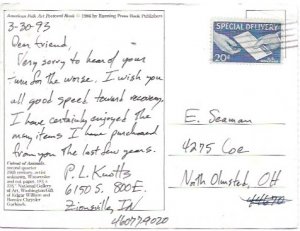 American Folk Art Postcard Book © 1986 by Running Press Book Publishers
3-30-93
Dear friend,
Very sorry to hear of your
turn for the worse. I wish you
all good speed toward recovery.
I have certainly enjoyed the
many items I have purchased
from you the last few years.
P. L. Knotts
6150 S. 800 E.
Zionsville, IN
46077-9020
SPECIAL DELIVERY
20¢
E. Seaman
4275 Coe
North Olmsted, OH
44070
second quarter
19th century, artist
unknown. Watercolor
and cut paper, 19¾ x
National Gallery
of Art, Washington/Gift
of Edgar William and
Bernice Chrysler
Garbisch